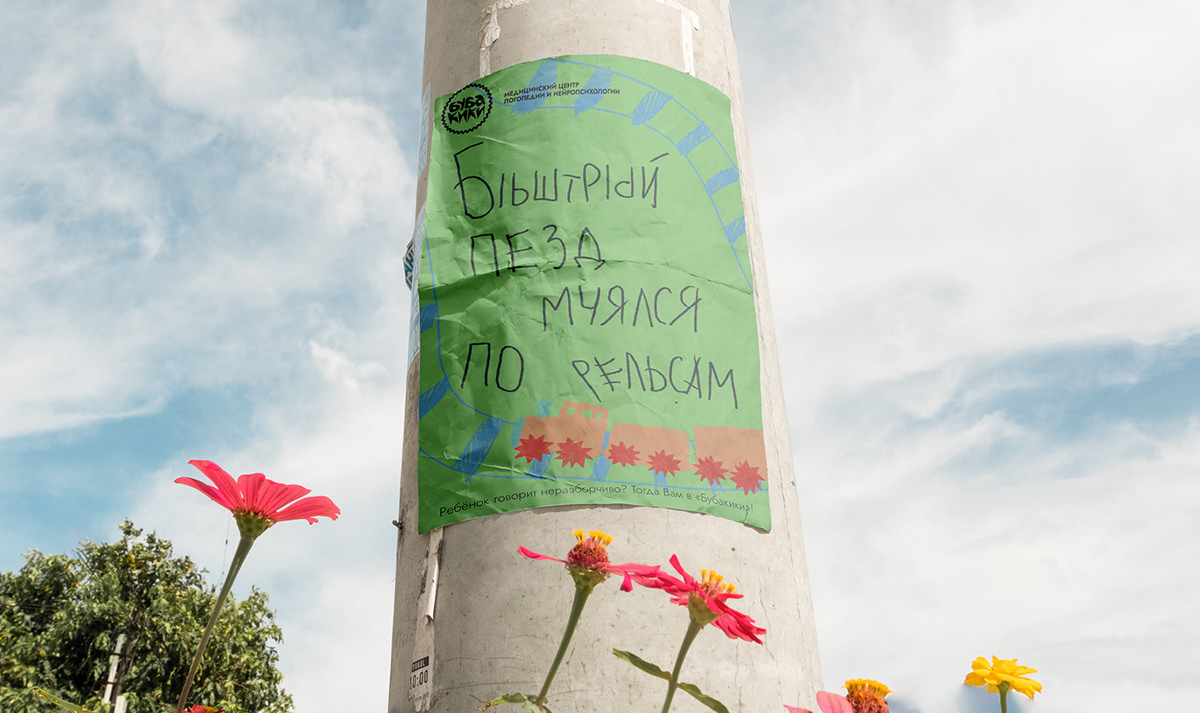 БУБА
КИКИ
МЕДИЦИНСКИЙ ЦЕНТР
ЛОГОПЕДИИ И НЕЙРОПСИХОЛОГИИ
БЫЬШТРЫЙ
ПЕЗД
МЧЯЛСЯ
ПО РЕЛЬСАМ
Ребёнок говорит неразборчиво? Тогда Вам в «Бубакики»!
10:00